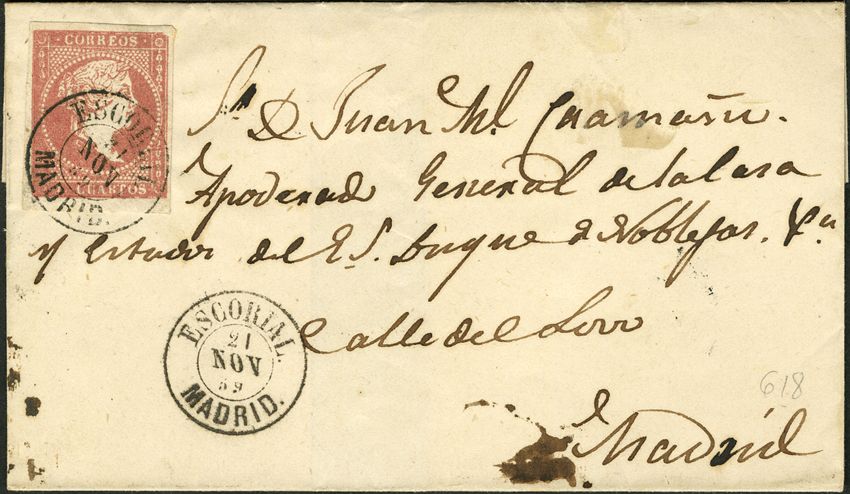 CORREOS
CUARTOS
ESCORIAL
21
NOV
MADRID.
Sr. D. Juan Ml. Caamaño.
Apoderado General de la Casa
y Estados del E. S. Duque de Noblejas. &a
Calle del
ESCORIAL.
21
NOV
59
MADRID.
618
Madrid